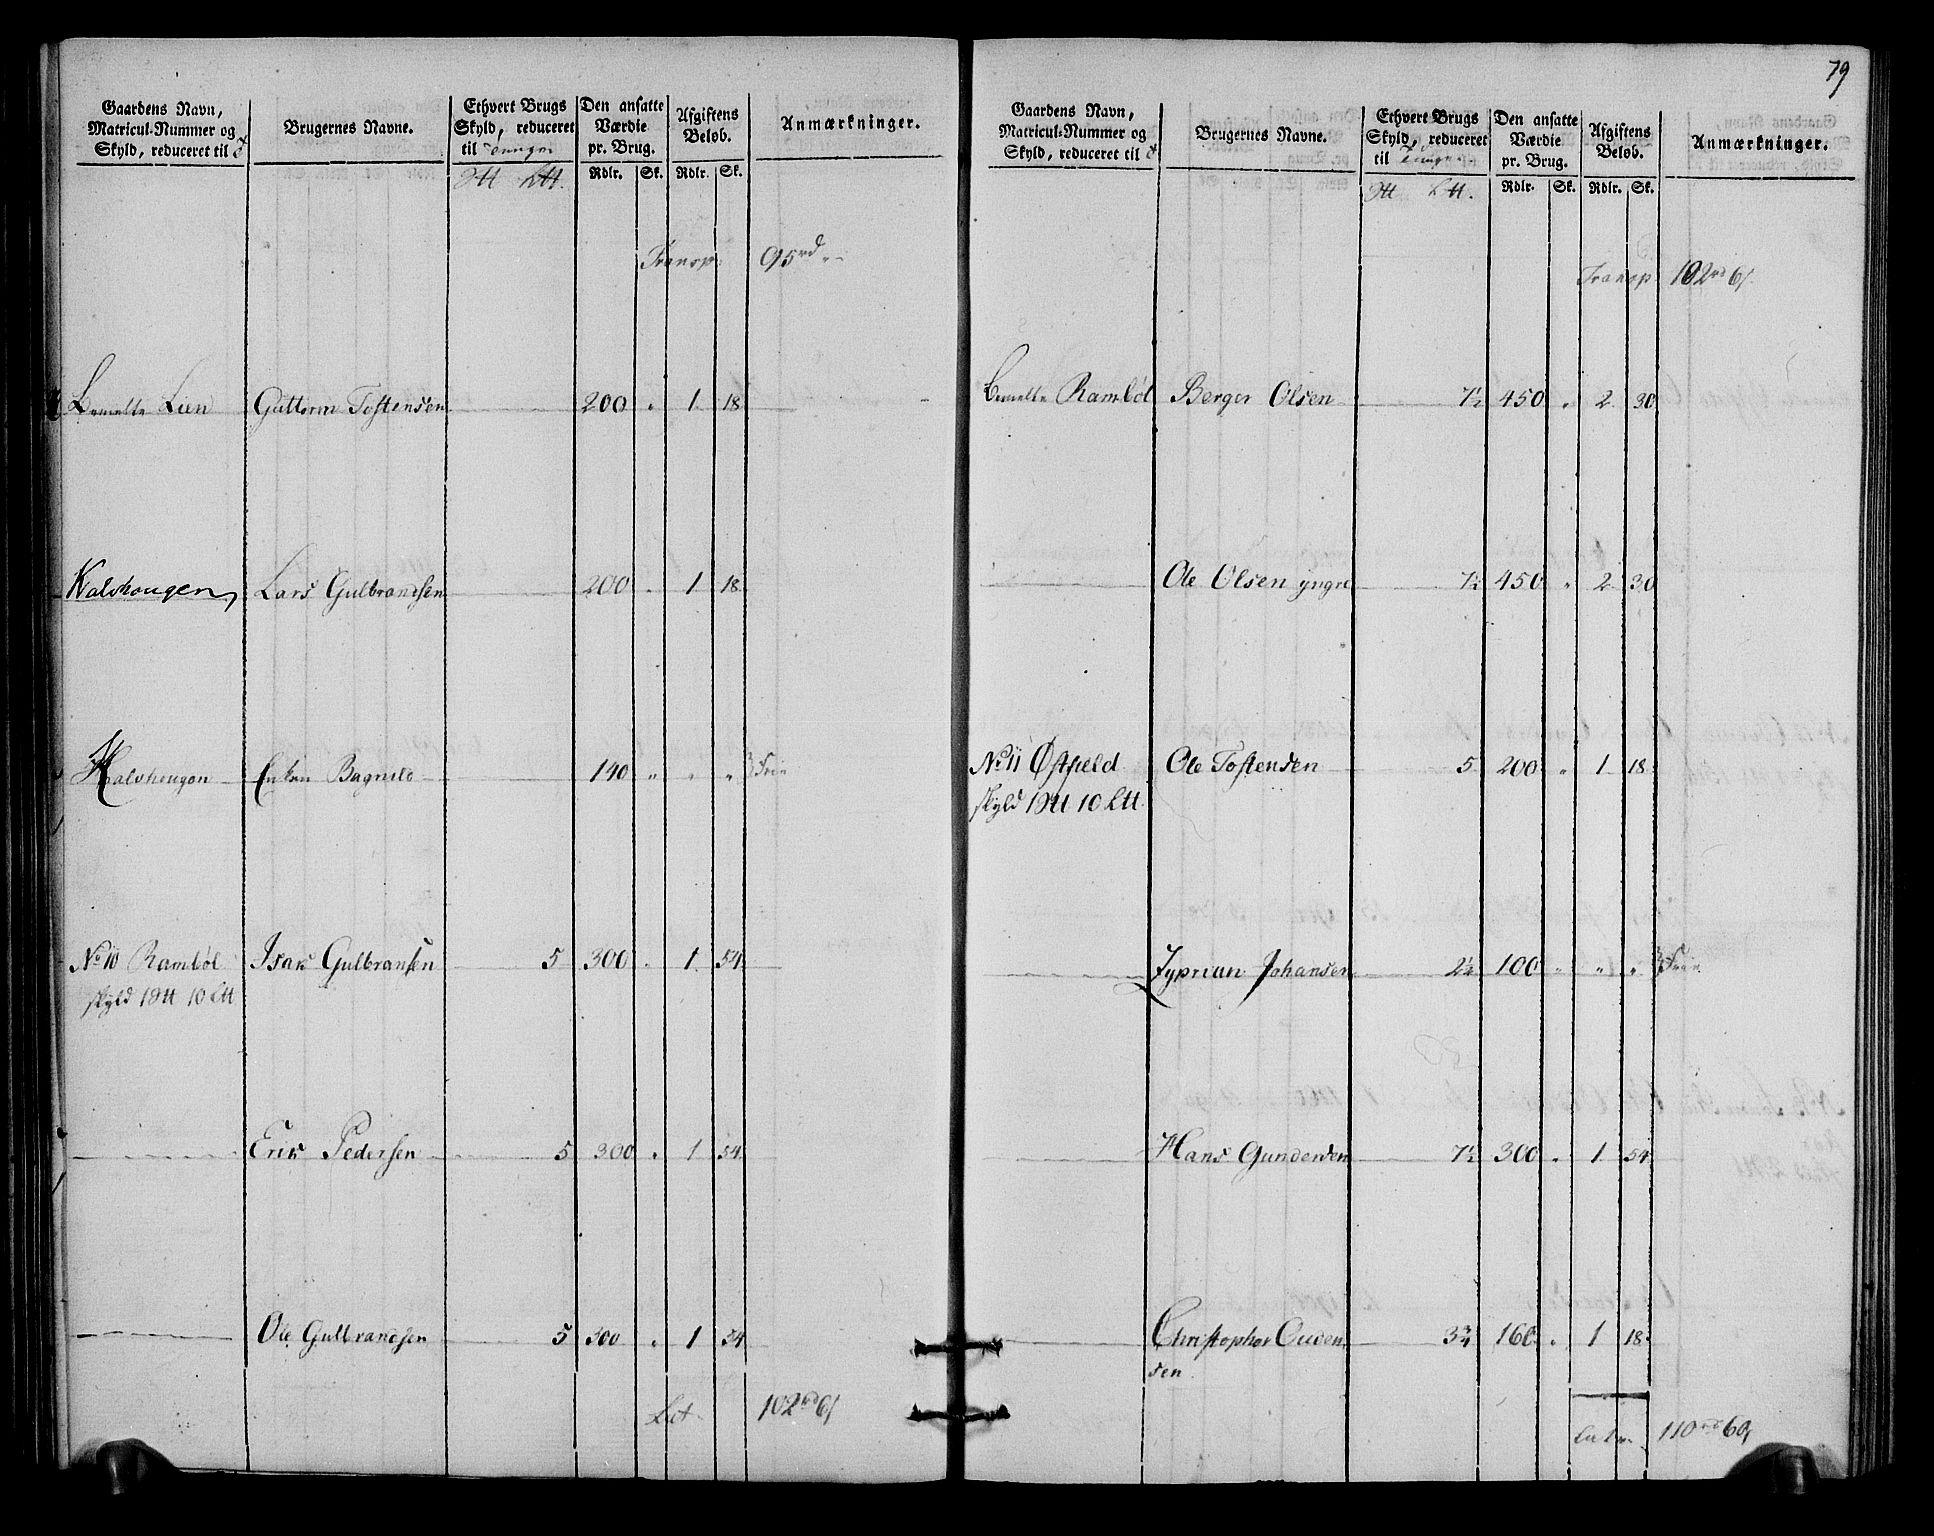 Gaardens Navn, Matricul-Nummer og Skyld, reduceret til | Brugernes Navne. | Ethvert Brugs Skyld, reduceret til Tunge | Den ansatte Værdie pr. Brug. | Afgiftens Beløb. | Anmærkninger.
Rdlr. | Sk. | Rdlr. | Sk.
Transp. 95 rd „ -
Lien | Guttorm Tostensen | 200 | „ | 1 | 18
Kalshougen | Lars Gulbrandsen | 200 | „ | 1 | 18
Kalshougen | Enken Bagnild | 140 | „ | „ | „ | Frie
No 10 Rambøl | Isak Gulbransen | 5 | 300 | „ | 1 | 54
skyld 1 10
Erik Pedersen | 5 | 300 | „ | 1 | 54
Ole Gulbrandsen | 5 | 300 | „ | 1 | 54
Lat. 102 rd 6 s
79
Gaardens Navn, Matricul-Nummer og Skyld, reduceret til | Brugernes Navne. | Ethvert Brugs Skyld, reduceret til Tunge | Den ansatte Værdie pr. Brug. | Afgiftens Beløb. | Anmærkninger.
Rdlr. | Sk. | Rdlr. | Sk.
Transp. 102 rd 6 s
Rambøl | Berger Olsen | 7½ | 450 | „ | 2 | 30
Ole Olsen yngre | 7½ | 450 | „ | 2 | 30
No 11 Østfield | Ole Tostensen | 5 | 200 | „ | 1 | 18
skyld 1 10
Zyprian Johansen | 2½ | 100 | „ | „ | „ | Frie
Hans Gundersen | 7½ | 300 | „ | 1 | 54
Christopher Ouden | 3¾ | 160 | „ | 1 | 18
sen
110 rd 60 s